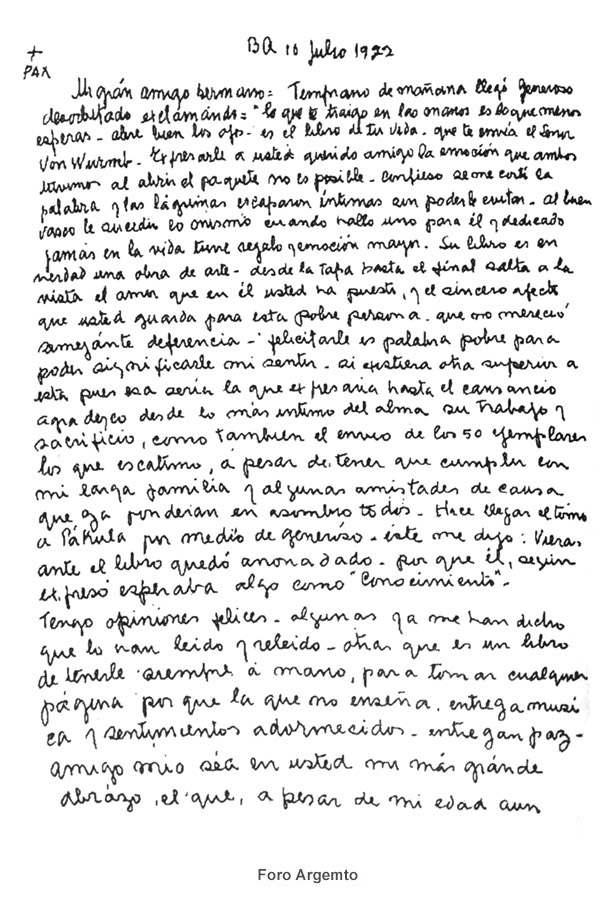 + BA 10 Julio 1922
PAX
Mi grán amigo hermano = Temprano de mañana llegó Generoso
desorbitado exclamándo = "lo que te traigo en las manos es lo que menos
esperas - abre bien los ojos - es el libro de tu vida - que te envía el Señor
Von Wurmb - Expresarle a usted querido amigo la emoción que ambos
tuvimos al abrir el paquete no es posible - confieso se me cortó la
palabra y las lágrimas escaparon íntimas sin poderlo evitar - al buen
vasco le sucedio lo mismo cuando hallo uno para él y dedicado
jamás en la vida tuve regalo y emoción mayor. Su libro es en
verdad una obra de arte - desde la tapa hasta el final salta a la
vista el amor que en él usted ha puesto, y el sincero afecto
que usted guarda para esta pobre persona - que no mereció
semejánte deferencia - felicitarle es palabra pobre para
poder significarle mi sentir - si existiera otra superior a
esta pues esa seria la que expresaria hasta el cansancio
agradezco desde lo más intimo del alma su trabajo y
sacrificio, como tambien el envio de los 50 ejemplares
los que escatimo, á pesar de tener que cumplir con
mi larga familia y algunas amistades de causa
que ponderian en asombro todos - Hace llegar el tomo
a Pákula por medio de generoso - éste me dijo: Vieras
ante el libro quedó anonadado - por que él, según
expresó esperaba algo como "Conocimiento" -
Tengo opiniones felices - algunas ya me han dicho
que lo han leido y releido - otras que es un libro
de tenerle siempre á mano, para tomar cualquier
página por que la que no enseña, entrega músi
ca y sentimientos adormecidos - entregan paz -
amigo mio séa en usted mi más gránde
abrázo, el que, a pesar de mi edad aun
Foro Argemto